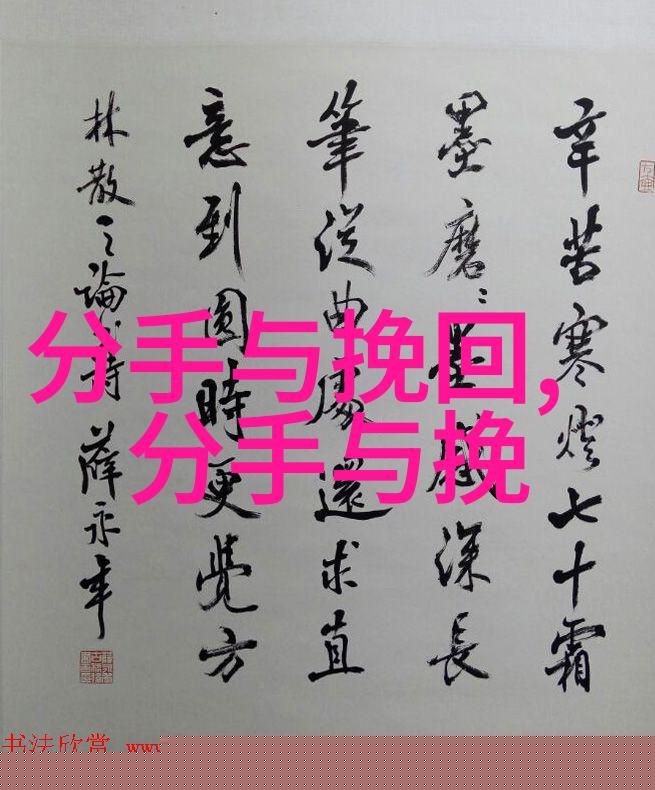 辛苦寒燈七十霜
墨磨:墨感深長
筆從曲處還求直
意到圓時更覺方
林散之論書詩 薛永年
分手与挽回,
分手与挽
书法欣赏